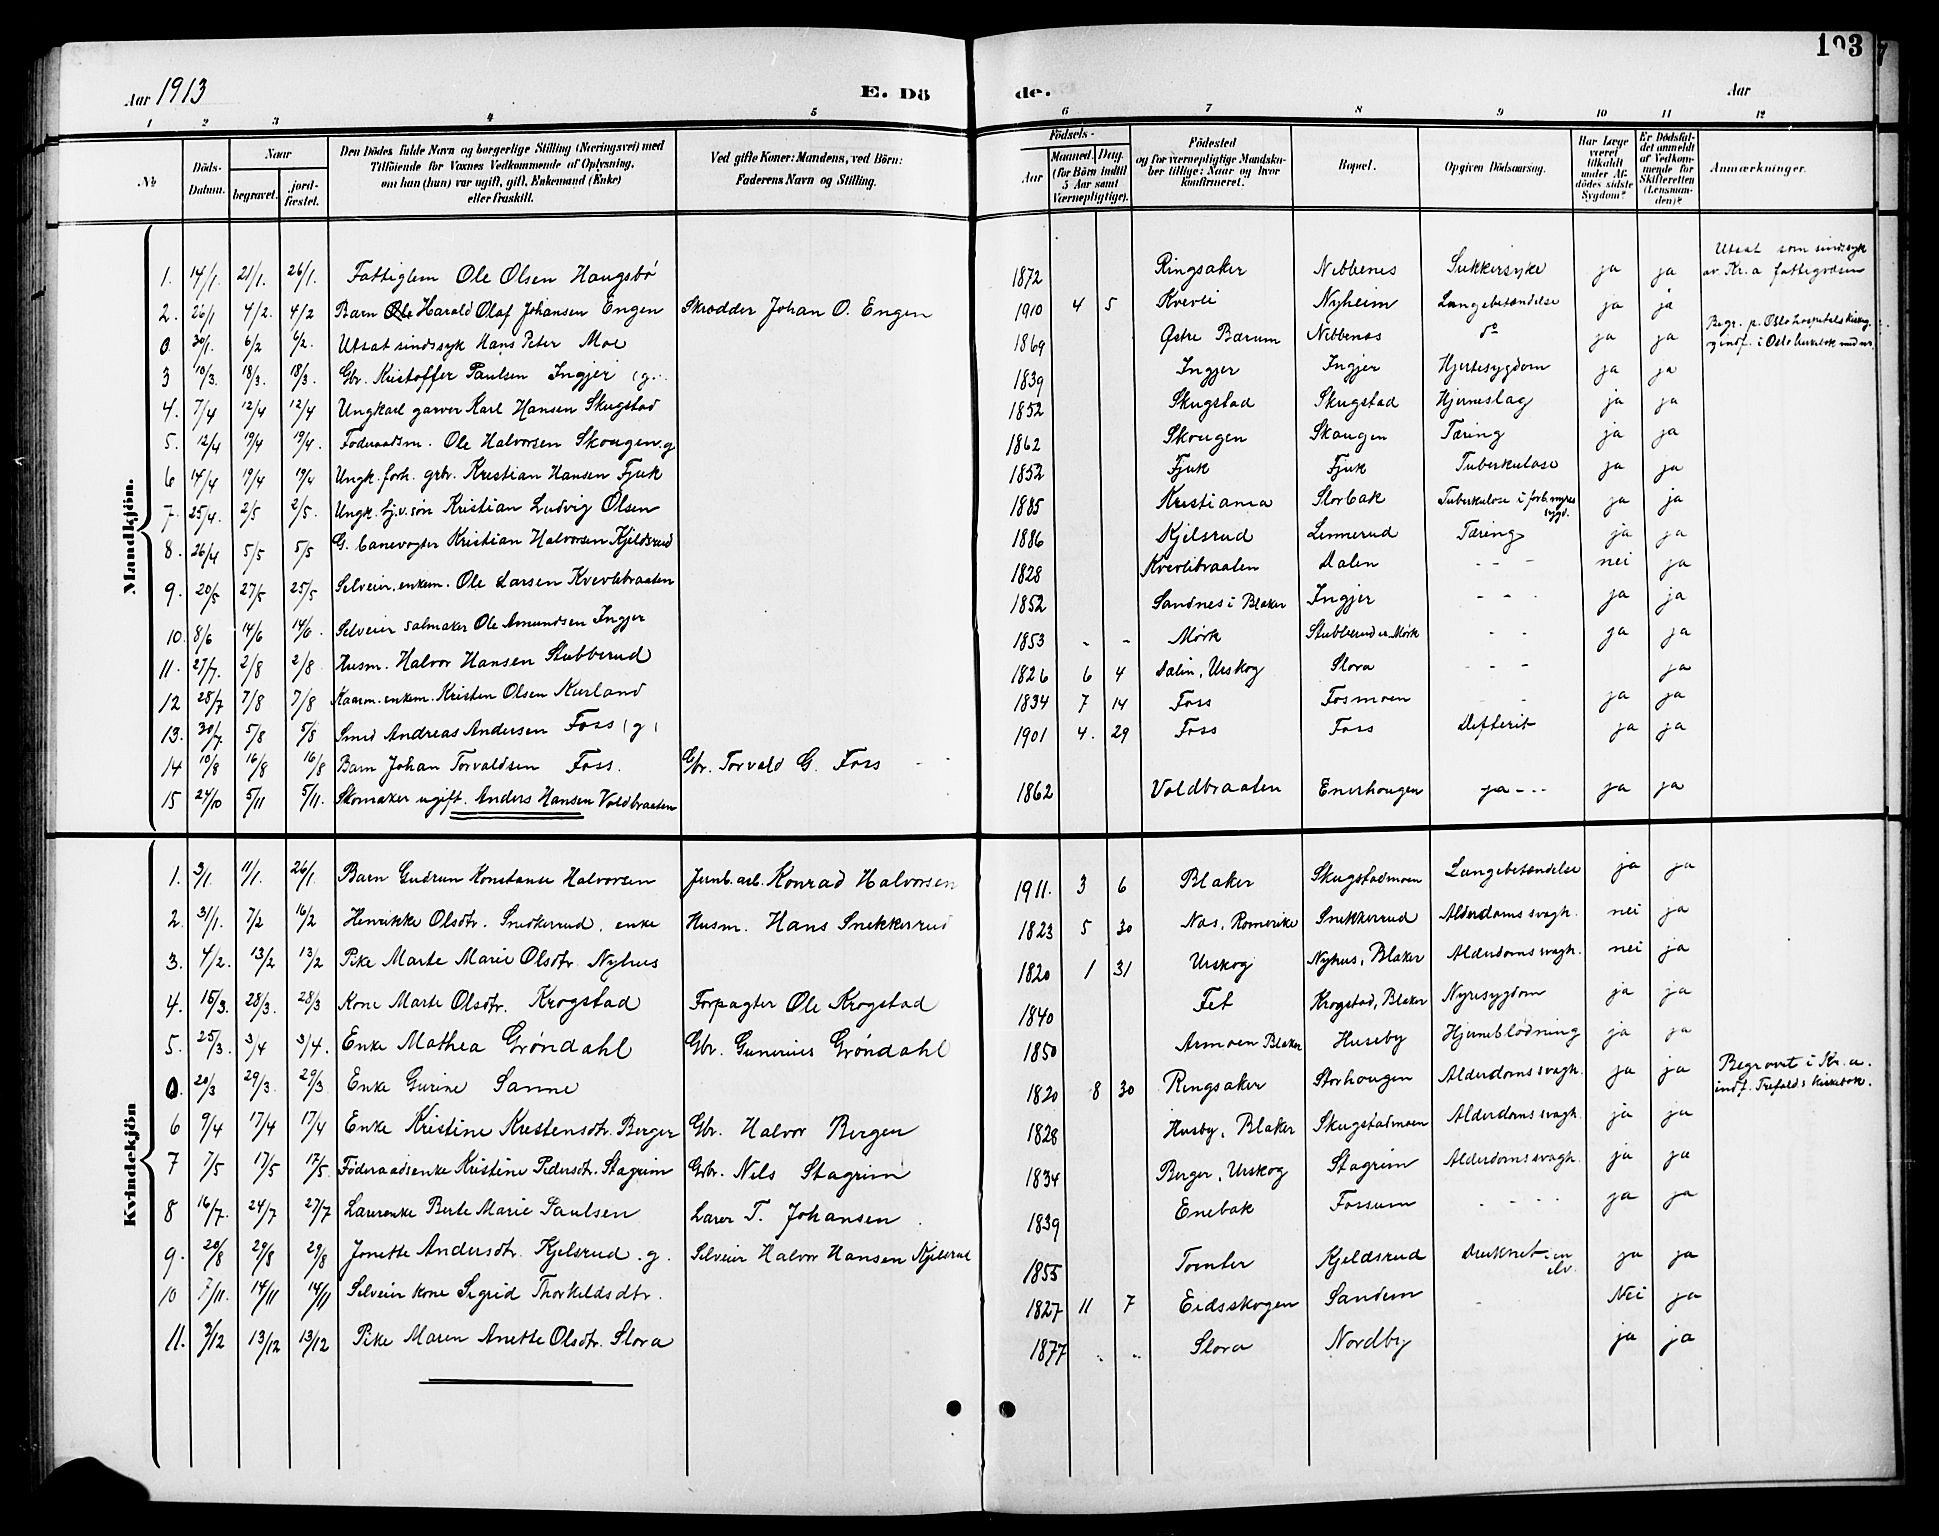 103
Aar 1913 E. Dö de. Aar
1 2 3 4 5 6 7 8 9 10 11 12
No Döds-Datum. Naar begravet. jord-fæstet. Den Dödes fulde Navn og borgerlige Stilling (Næringsvei) med Tilföiende for Voxnes Vedkommende af Oplysning, om han (hun) var ugift, gift, Enkemand (Enke) eller fraskilt. Ved gifte Koner: Mandens, ved Börn: Faderens Navn og Stilling. Födsels- Aar Maaned. Dag. (for Börn indtil 5 Aar samt Værnepligtige). Födested og for værnepligtige Mandskaber tillige: Naar og hvor konfirmeret. Bopæl. Opgiven Dödsaarsag. Har Læge været tilkaldt under Afdödes sidste Sygdom? Er Dödsfaldet anmeldt af Vedkommende for Skifteretten (Lensmanden)? Anmærkninger.
Mandkjön.
1. 14/1. 21/1. 26/1. Fattiglem Ole Olsen Haugsbö 1872 Ringsaker Nebbenes Sukkersyke ja ja Utsat som sindssyk av Kr.a fattigvæsen
2. 26/1 4/2. 4/2 Barn Ole Harald Olaf Johansen Engen Skrædder Johan O. Engen 1910 4 5 Kverli Nyheim Lungebetændelse ja ja
0. 30/1. 6/2 6/2. Utsat sindssyk Hans Peter Moe 1869 Østre Bærum Nebbenes do ja ja Begr. p. Oslo hospitals kirkeg. og indf. i Oslo kirkebok med nr.
3 10/3. 18/3. 18/3. Gbr. Kristoffer Paulsen Ingjer (g.. 1839 Ingjer Ingjer Hjertesygdom ja ja
4. 7/4 12/4 12/4 Ungkarl garver Karl Hansen Skugstad 1852 Skugstad Skugstad Hjerneslag ja ja
5. 12/4 19/4 19/4. Föderaadsm. Ole Halvorsen Skougen. g 1862 Skougen Skaugen Tæring ja ja
6 14/4 19/4 19/4 Ungk. forh. grbr. Kristian Hansen Fjuk 1852 Fjuk Fjuk Tuberkulose ja ja
7. 25/4. 2/5 2/5. Ungk. Kristian Ludvig Olsen 1885 Kristiania Storbak Tuberkulose i forb. nyresygd. ja ja
8. 26/4 5/5 5/5 G. banevogter Kristian Halvorsen Kjeldsrud 1886 Kjelsrud Linnerud Tæring ja ja
9. 20/5 27/5 25/5 Selveier, enkem. Ole Larsen Kverlibraaten 1828 Kverlibraaten Dalen - - - nei ja
10. 8/6 14/6 14/6. Selveier salmaker Ole Amundsen Ingjer 1852 Sandnes i Blaker Ingjer - - - ja ja
11. 27/7. 2/8 2/8. Husm. Halvor Hansen Stubberud 1853 - - Mörk Stubberud u. Mörk - - ja ja
12 28/7 7/8 7/8 Kaarm. enkem. Kristen Olsen Kurland 1826 6 4 Dalin, Urskog Slora - - - ja
13. 30/7. 5/8 5/8 Smed Andreas Andersen Foss (g) 1834 7 14 Foss Fosmoen - ja ja
14 10/8 16/8 16/8 Barn Johan Torvaldsen Foss. Gbr. Torvald G. Foss 1901 4. 29 Foss Foss Defterit ja ja
15 24/10 5/11 5/11. Skomaker ugift. Anders Hansen Voldbraaten 1862 Voldbraaten Enerhougen ja - - - ja ja
Kvindekjön
1. 3/1. 11/1. 26/1. Barn Gudrun Konstanse Halvorsen Jernb. arb. Konrad Halvorsen 1911. 3 6 Blaker Skugstadmoen Lungebetændelse ja ja
2. 31/1. 7/2 16/2 Henrikke Olsdtr. Snekkerrud, enke Husm. Hans Snekkerrud 1823 5 30 Nes, Romerike Snekkerrud Alderdomssvagh. nei ja
3. 4/2. 13/2 13/2 Pike Marte Marie Olsdtr. Nyhus 1820 1 31 Urskog Nyhus, Blaker Alderdomssvagh. nei ja
4. 15/3. 28/3. 28/3 Kone Marte Olsdtr. Krogstad Forpagter Ole Krogstad 1840 Fet Krogstad, Blaker Nyresygdom ja ja
5. 25/3. 3/4 3/4. Enke Mathea Gröndahl Gbr. Gunerius Gröndahl 1850 Armoen Blaker Huseby Hjerneblödning ja ja
0. 20/3 29/3. 29/3 Enke Gurine Sanne 1820 8 30 Ringsaker Storhougen Alderdomssvagh. ja ja Begravet i Kr.a. indf. Trefolds kirkebok.
6 9/4 17/4 17/4 Enke Kristine Kristensdtr. Berger Gbr. Halvor Bergen 1828 Husby, Blaker Skugstadmoen Alderdomssvagh. ja ja
7 7/5 17/5 17/5. Föderaadsenke Kristine Pedersdtr. Stagrim Grbr. Nils Stagrim 1834 Berger, Urskog Stagrim Alderdomssvagh. ja ja
8 16/7. 24/7 27/7 Lærerenke Berte Marie Paulsen Lærer T. Johansen 1839 Enebak Forsum - - - ja ja
9. 20/8 29/8 29/8 Jonette Andersdtr. Kjelsrud. g. Selveier Halvor Hansen Kjelsrud 1855 Tomter Kjeldsrud Druknet i en elv. ja ja
10 7/11. 14/11 14/11 Selveier kone Sigrid Thorkildsdtr. 1827 11 7 Eidsskogen Sandem - Nei ja
11. 3/12 13/12 13/12 Pike Maren Anette Olsdtr. Slora 1877 " " Slora Nordby ja ja